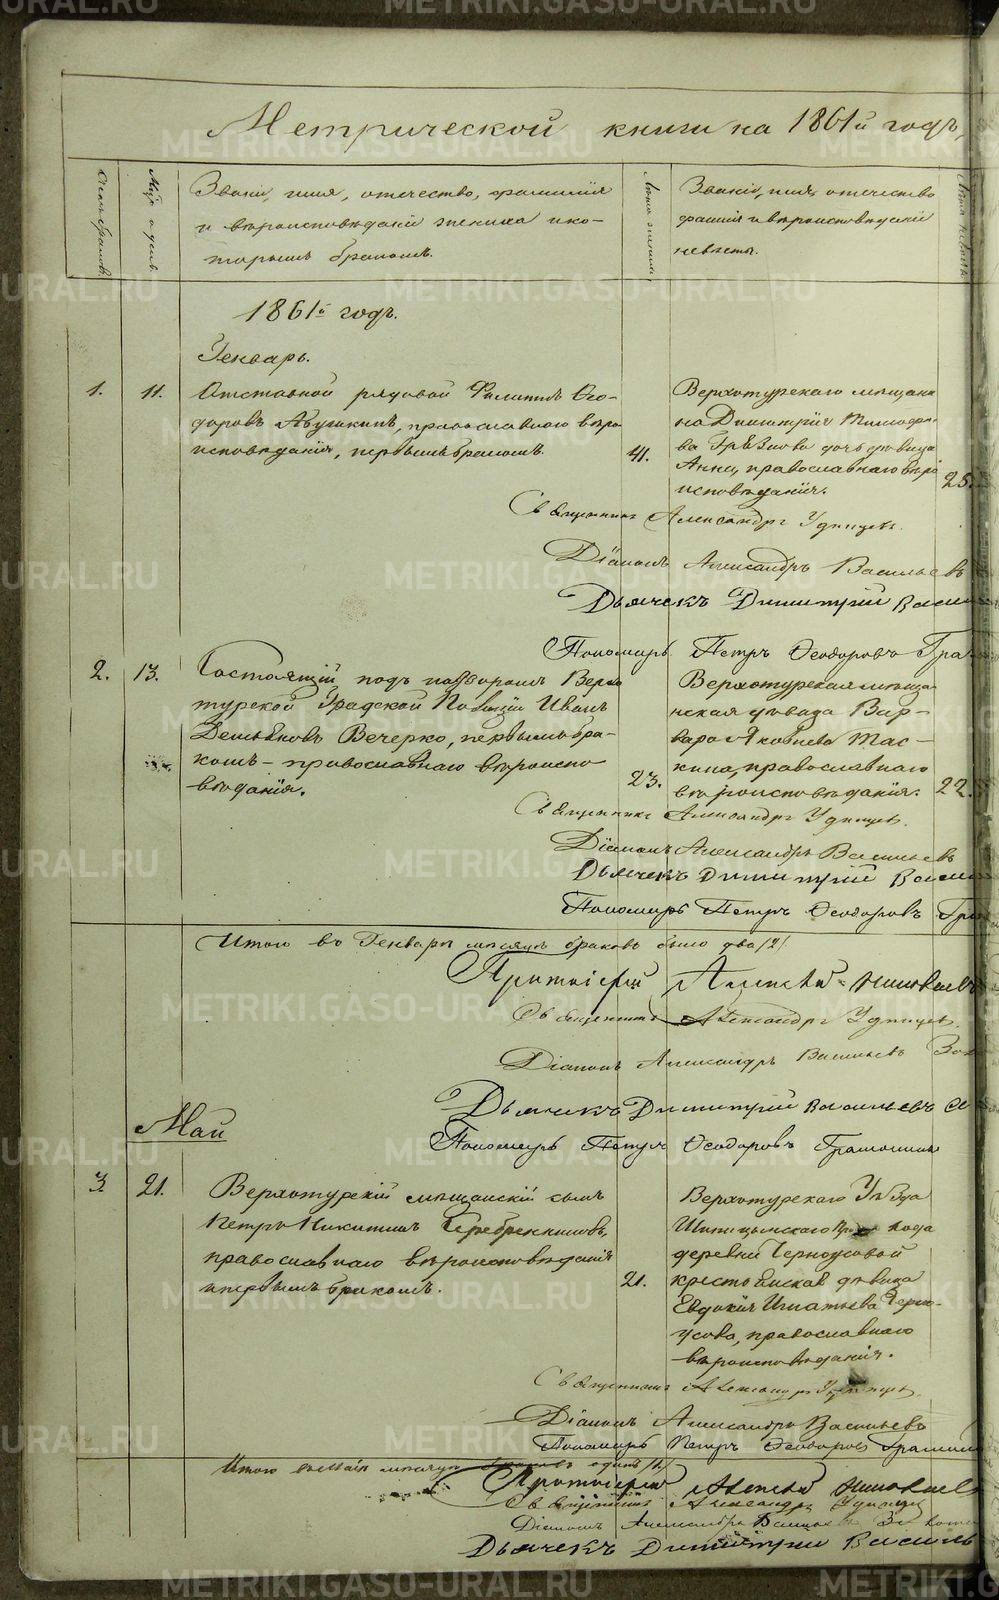 Метрической книги на 1861й годъ,
Счетъ браковъ.
Мцъ и день.
Званіе, имя, отечество, фамилія
и вѣроисповѣданіе жениха и ко-
торымъ бракомъ.
Лѣта жениха.
Званіе, имя, отечество
фамилія и вѣроисповѣданіе
невѣсты.
Лѣта невѣсты.
1861й годъ.
Генварь.
1.
11.
Отставной рядовой Филиппъ Ѳео-
доровъ Абушкинъ, православного вѣро
исповѣданія, первымъ бракомъ.
41.
Верхотурскаго мѣщани
на Димитрія
ва дочь дѣвица
Анна, православнаго вѣро
исповѣданія.
25.
Священникъ Александръ Удинцевъ.
Діаконъ Александръ Васильевъ
Дьячекъ Димитрій Васил
Пономарь Петръ Ѳеодоровъ Гра
2.
13.
Состоящій подъ надзоромъ Верхо
турской Градской Полиціи Иванъ
Демьяновъ Вечерко, первымъ бра-
комъ – православнаго вѣроиспо
вѣданія.
23.
Верхотурская мѣща-
нская дѣвица Вар-
вара Яковлева Тас-
кина, православнаго
вѣроисповѣданія.
22.
Священникъ Александръ Удинцевъ.
Діаконъ Александръ Васильевъ
Дьячекъ Димитрій Васил
Пономарь Петръ Ѳеодоровъ Гра
Итого въ Генварѣ мѣсяцѣ браковъ было два /2/
Протоіерей Алексѣй Николаевъ
Священникъ Александръ Удинцевъ.
Діаконъ Александръ Васильевъ
Дьячекъ Димитрій Васильевъ
Пономарь Петръ Ѳеодоровъ
Май
3.
21.
Верхотурскій мѣщанскій сынъ
Петръ Никитинъ Серебренниковъ,
православнаго вѣроисповѣданія
первымъ бракомъ.
21.
Верхотурскаго Уѣзда
деревни Черноусовой
крестьянская дѣвица
Евдокія Игнатьева Черно-
усова, православнаго
вѣроисповѣданія.
Священникъ Александръ Удинцевъ.
Діаконъ Александръ Васильевъ
Пономарь Петръ Ѳеодоровъ
Итого въ Маѣ мѣсяцѣ браковъ одинъ /1/
Протоіерей Алексѣй Николаев
Священникъ Александръ Удинцев
Діаконъ Александръ Васильевъ
Дьячекъ Димитрій Василь
METRIKI.GASO-URAL.RU